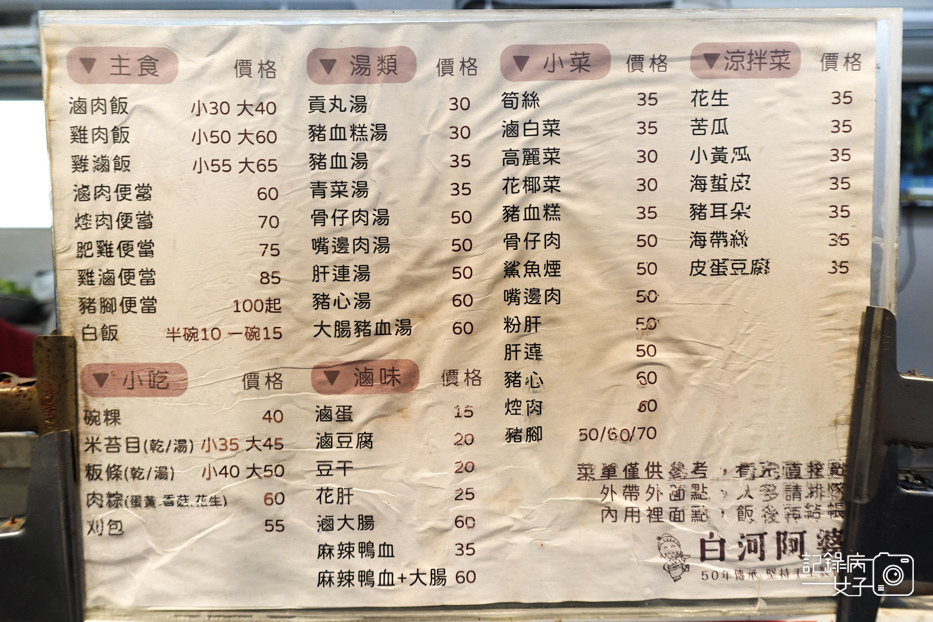 ▼ 主食 價格
滷肉飯 小30 大40
雞肉飯 小50 大60
雞滷飯 小55 大65
滷肉便當 60
焢肉便當 70
肥雞便當 75
雞滷便當 85
豬腳便當 100起
白飯 半碗10 一碗15
▼ 小吃 價格
碗粿 40
米苔目(乾/湯) 小35 大45
粄條(乾/湯) 小40 大50
肉粽(蛋黃.香菇.花生) 60
刈包 55
▼ 湯類 價格
貢丸湯 30
豬血糕湯 30
豬血湯 35
青菜湯 35
骨仔肉湯 50
嘴邊肉湯 50
肝連湯 50
豬心湯 60
大腸豬血湯 60
▼ 滷味 價格
滷蛋 15
滷豆腐 20
豆干 20
花肝 25
滷大腸 60
麻辣鴨血 35
麻辣鴨血+大腸 60
▼ 小菜 價格
筍絲 35
滷白菜 35
高麗菜 30
花椰菜 30
豬血糕 35
骨仔肉 50
鯊魚煙 50
嘴邊肉 50
粉肝 50
肝連 50
豬心 60
焢肉 60
豬腳 50/60/70
▼ 涼拌菜 價格
花生 35
苦瓜 35
小黃瓜 35
海蜇皮 35
豬耳朵 35
海帶絲 35
皮蛋豆腐 35
菜單僅供參考，看完請接點
外帶外面點，人多請排隊
內用裡面點，飯後再結帳
白河阿婆
50年滷水 堅持
記錄病
女子